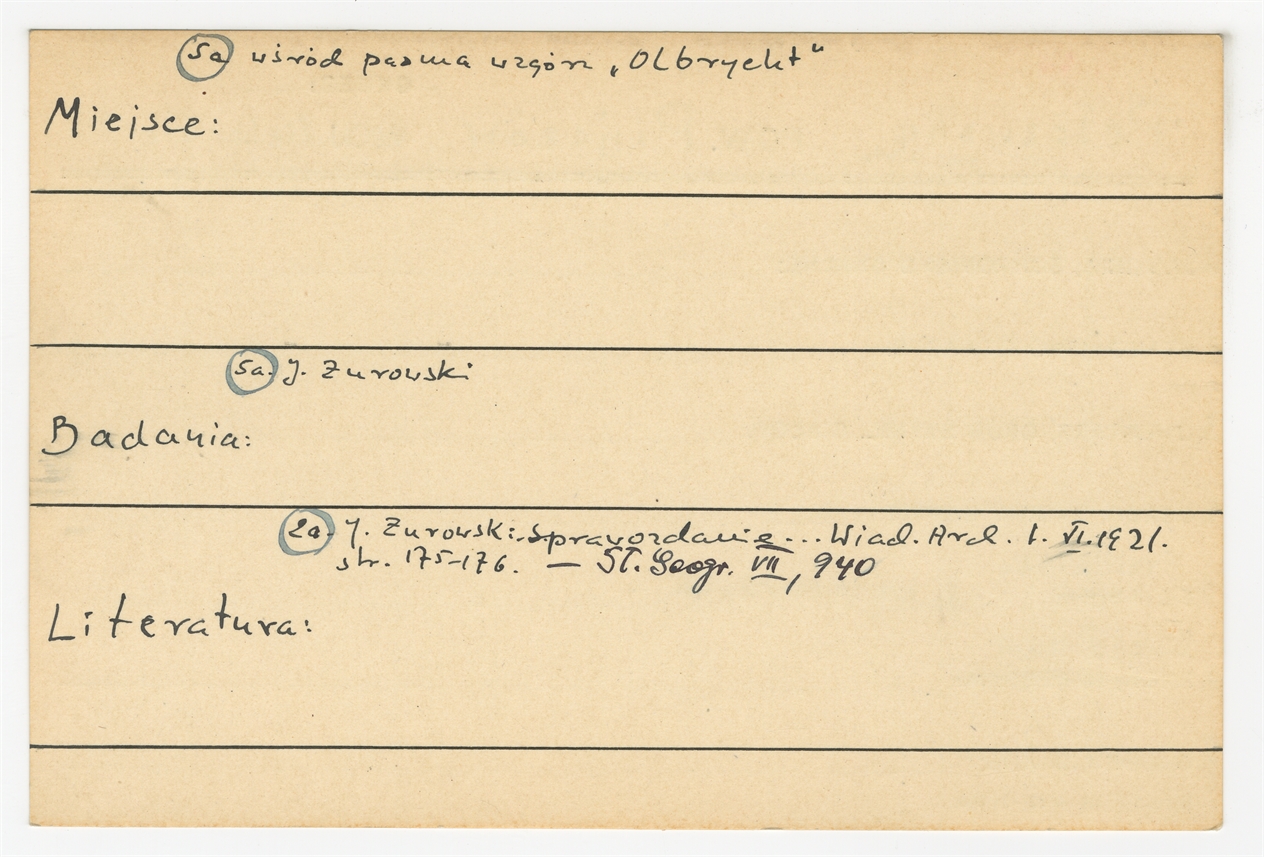 5a wśród pasma wzgórz „Olbrycht“
Miejsce:
5a. J. Żurowski
Badania:
2a. J. Żurowski: Sprawozdanie... Wiad. Arch. t. VI. 1921.
str. 175-176. — Sł. Geogr. VII, 940
Literatura: